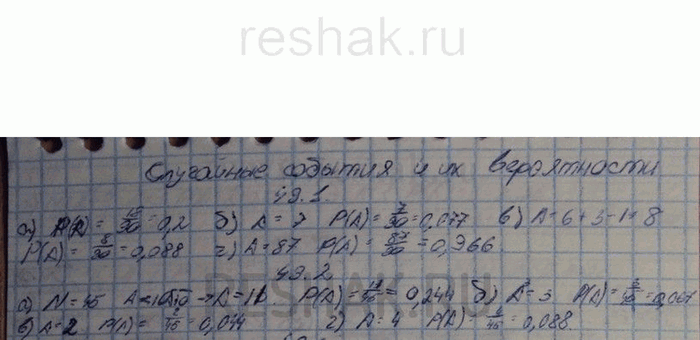 reshak.ru
Случайные события и их вероятности
49.1.
а) P(A) = 18/90 = 0,2 б) A = 7 P(A) = 7/90 = 0,077 в) A = 6 + 3 - 1 = 8
P(A) = 8/90 = 0,088 г) A = 87 P(A) = 87/90 = 0,966
49.2.
RESHAK.RU
а) N = 45 A = 11 P(A) = 11/45 = 0,244 б) A = 3 P(A) = 3/45 = 0,067
в) A = 2 P(A) = 2/45 = 0,044 г) A = 4 P(A) = 4/45 = 0,088